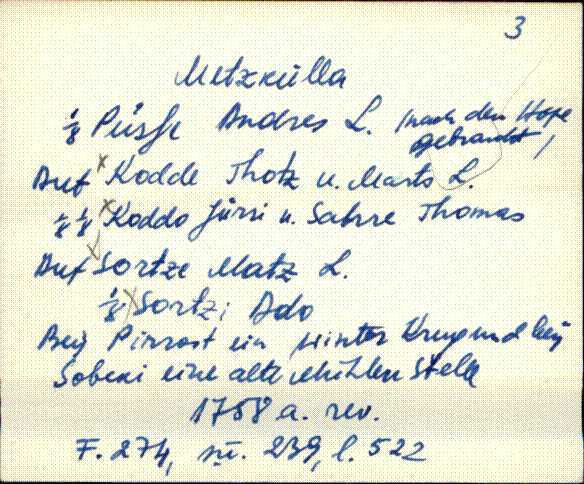 3
Metzkülla
1/8 Püssi Andres L. (nach dem Hofe
gebraucht)
Auf x Kodde Thotz u. Marts L.
1/8 1/8 x Koddo Jürri u. Sabrre Thomas
Auf Sortze Matz L.
1/8 x Sortzi Ado
Bey Pirrost ein winter Krug und bey
Sobeki eine alte Mühlen Stelle
1758 a. rev.
F. 274, nr. 239, l. 522